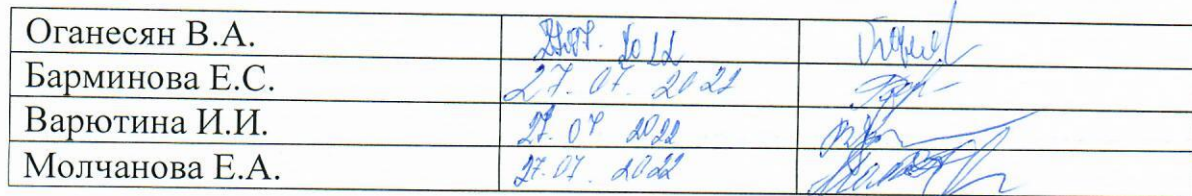 Оганесян В.А. 27.07.2022
Барминова Е.С. 27.07.2022
Варютина И.И. 27.07 2022
Молчанова Е.А. 27.07.2022